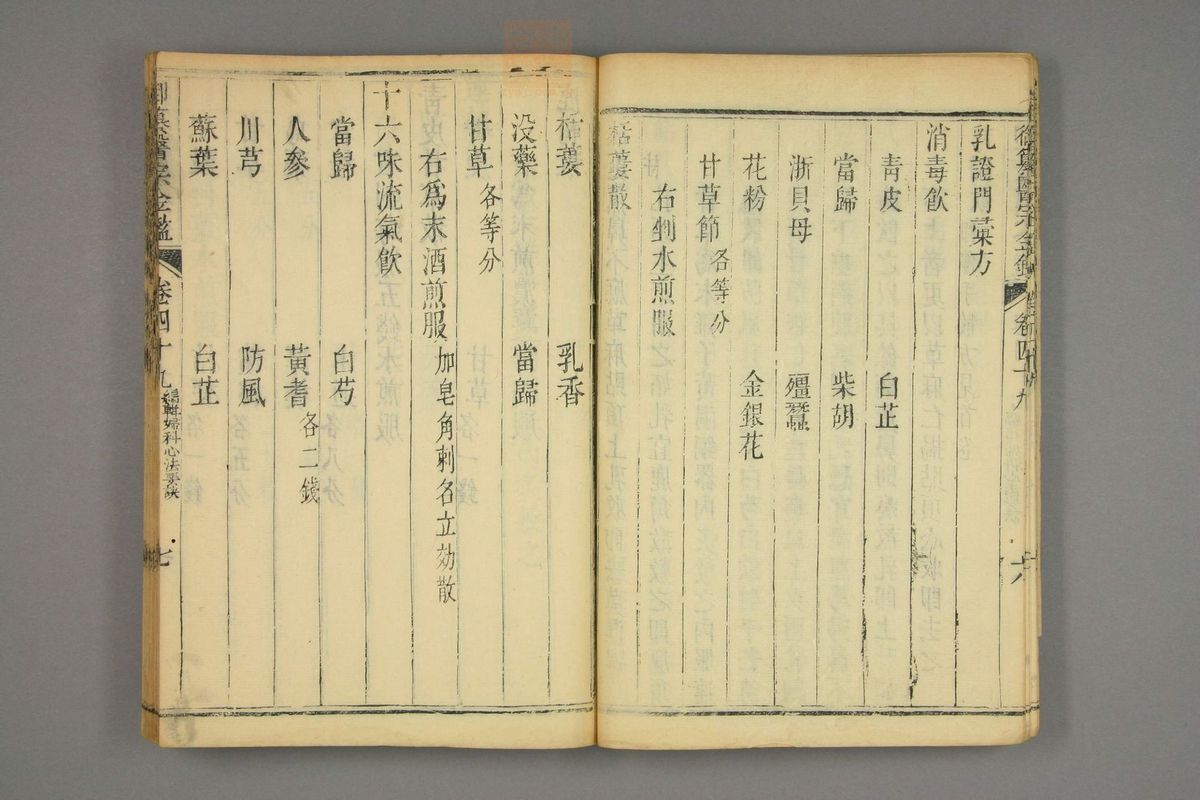 乳證門彙方
消毒飲
青皮 白芷
當歸 柴胡
浙貝母 殭蠶
花粉 金銀花
甘草節各等分
右剉水煎服
栝蔞散
栝蔞 乳香
没藥 當歸
甘草各等分
右爲末酒煎服加皂角刺名立効散
十六味流氣飲
當歸 白芍
人參 黃耆各二錢
川芎 防風
蘇葉 白芷
御纂醫宗金鑑 卷四十九 編輯婦科心法要訣 七